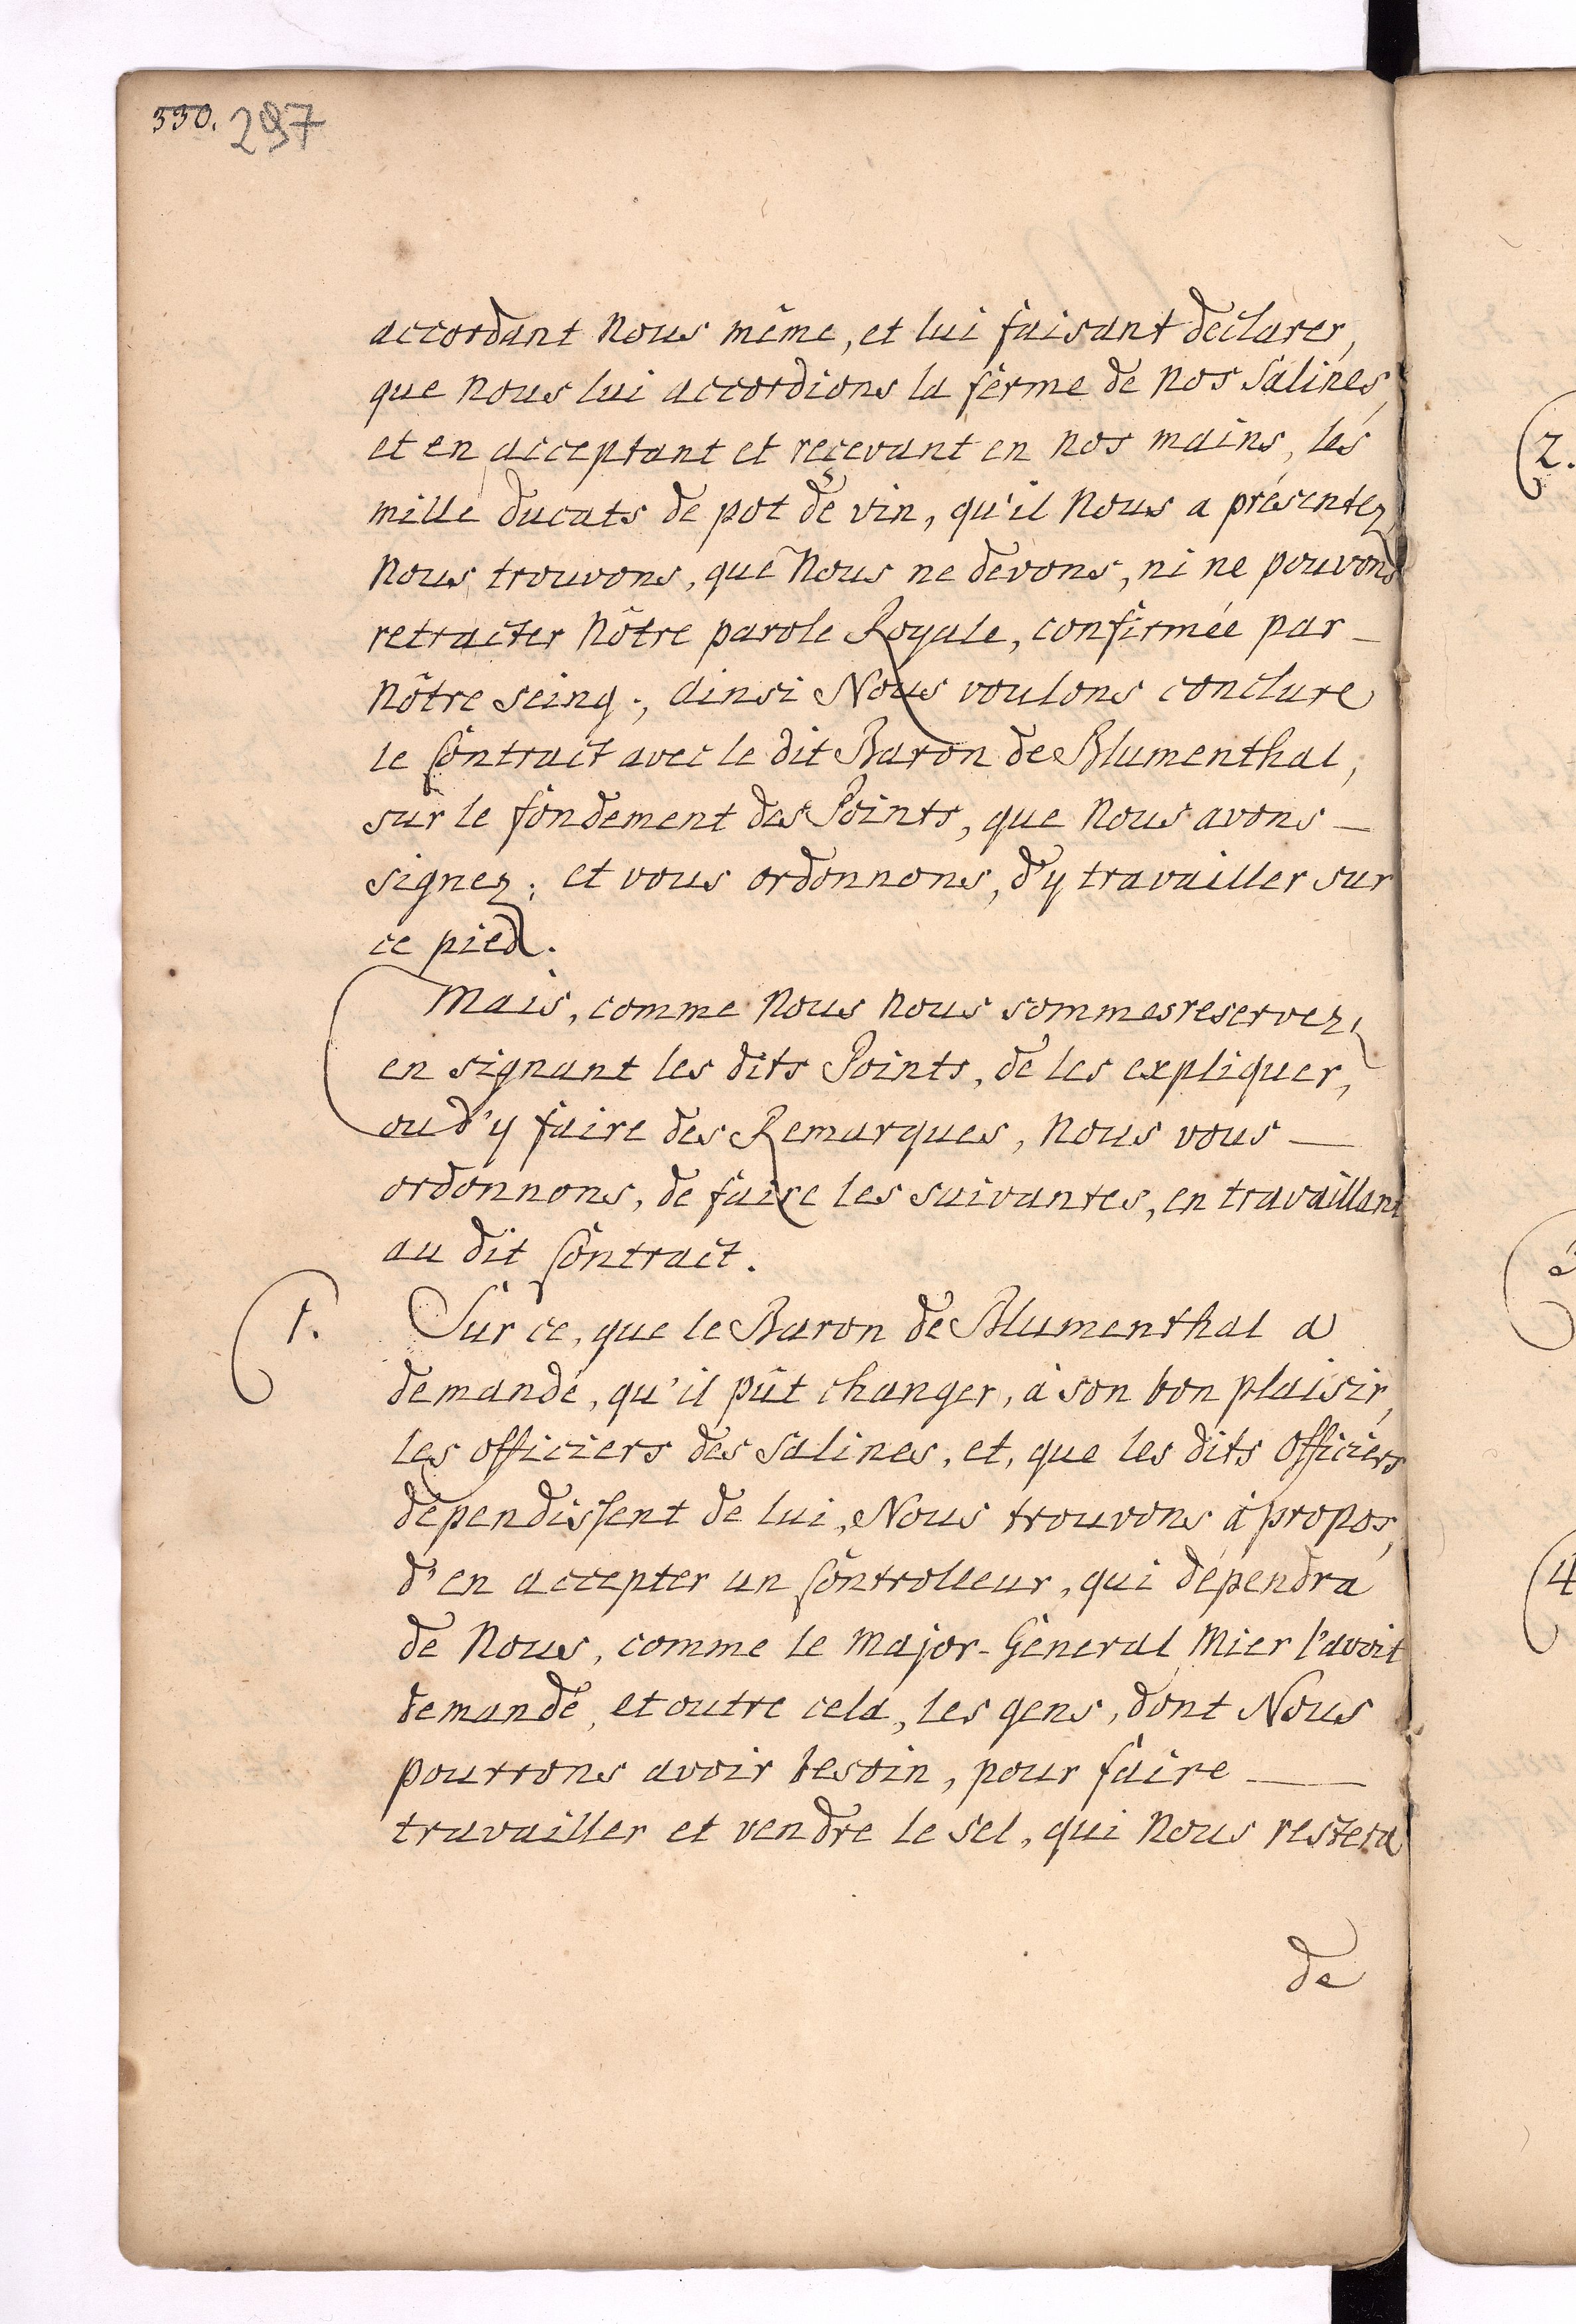 330. 297
accordant Nous même, et lui faisant déclarer,
que Nous lui accordions la ferme de Nos Salines,
et en acceptant et reçevant en Nos mains, les
mille ducats de pot de vin, qu'il Nous a présentez,
Nous trouvons, que Nous ne devons, ni ne pouvons
retracter Nôtre parole Royale, confirmée par
Nôtre seing; ainsi Nous voulons conclure
le Contract avec le dit Baron de Blumenthal,
sur le fondement des Points, que Nous avons
signez; et vous ordonnons, d'y travailler sur
ce pied.
Mais, comme Nous Nous sommes reservez,
en signant les dits Points, de les expliquer,
ou d'y faire des Remarques, Nous vous
ordonnons, de faire les suivantes, en travaillant
au dit Contract.
1. Sur ce, que le Baron de Blumenthal a
demandé, qu'il pût changer, à son bon plaisir,
les officiers des Salines, et, que les dits Officiers
dépendissent de lui, Nous trouvons à propos,
d'en accepter un Controlleur, qui dépendra
de Nous, comme le Major-Géneral Mier l'avoit
demandé, et outre cela, les gens, dont Nous
pourrons avoir besoin, pour faire
travailler et vendre le Sel, qui Nous restera
de
2.
4